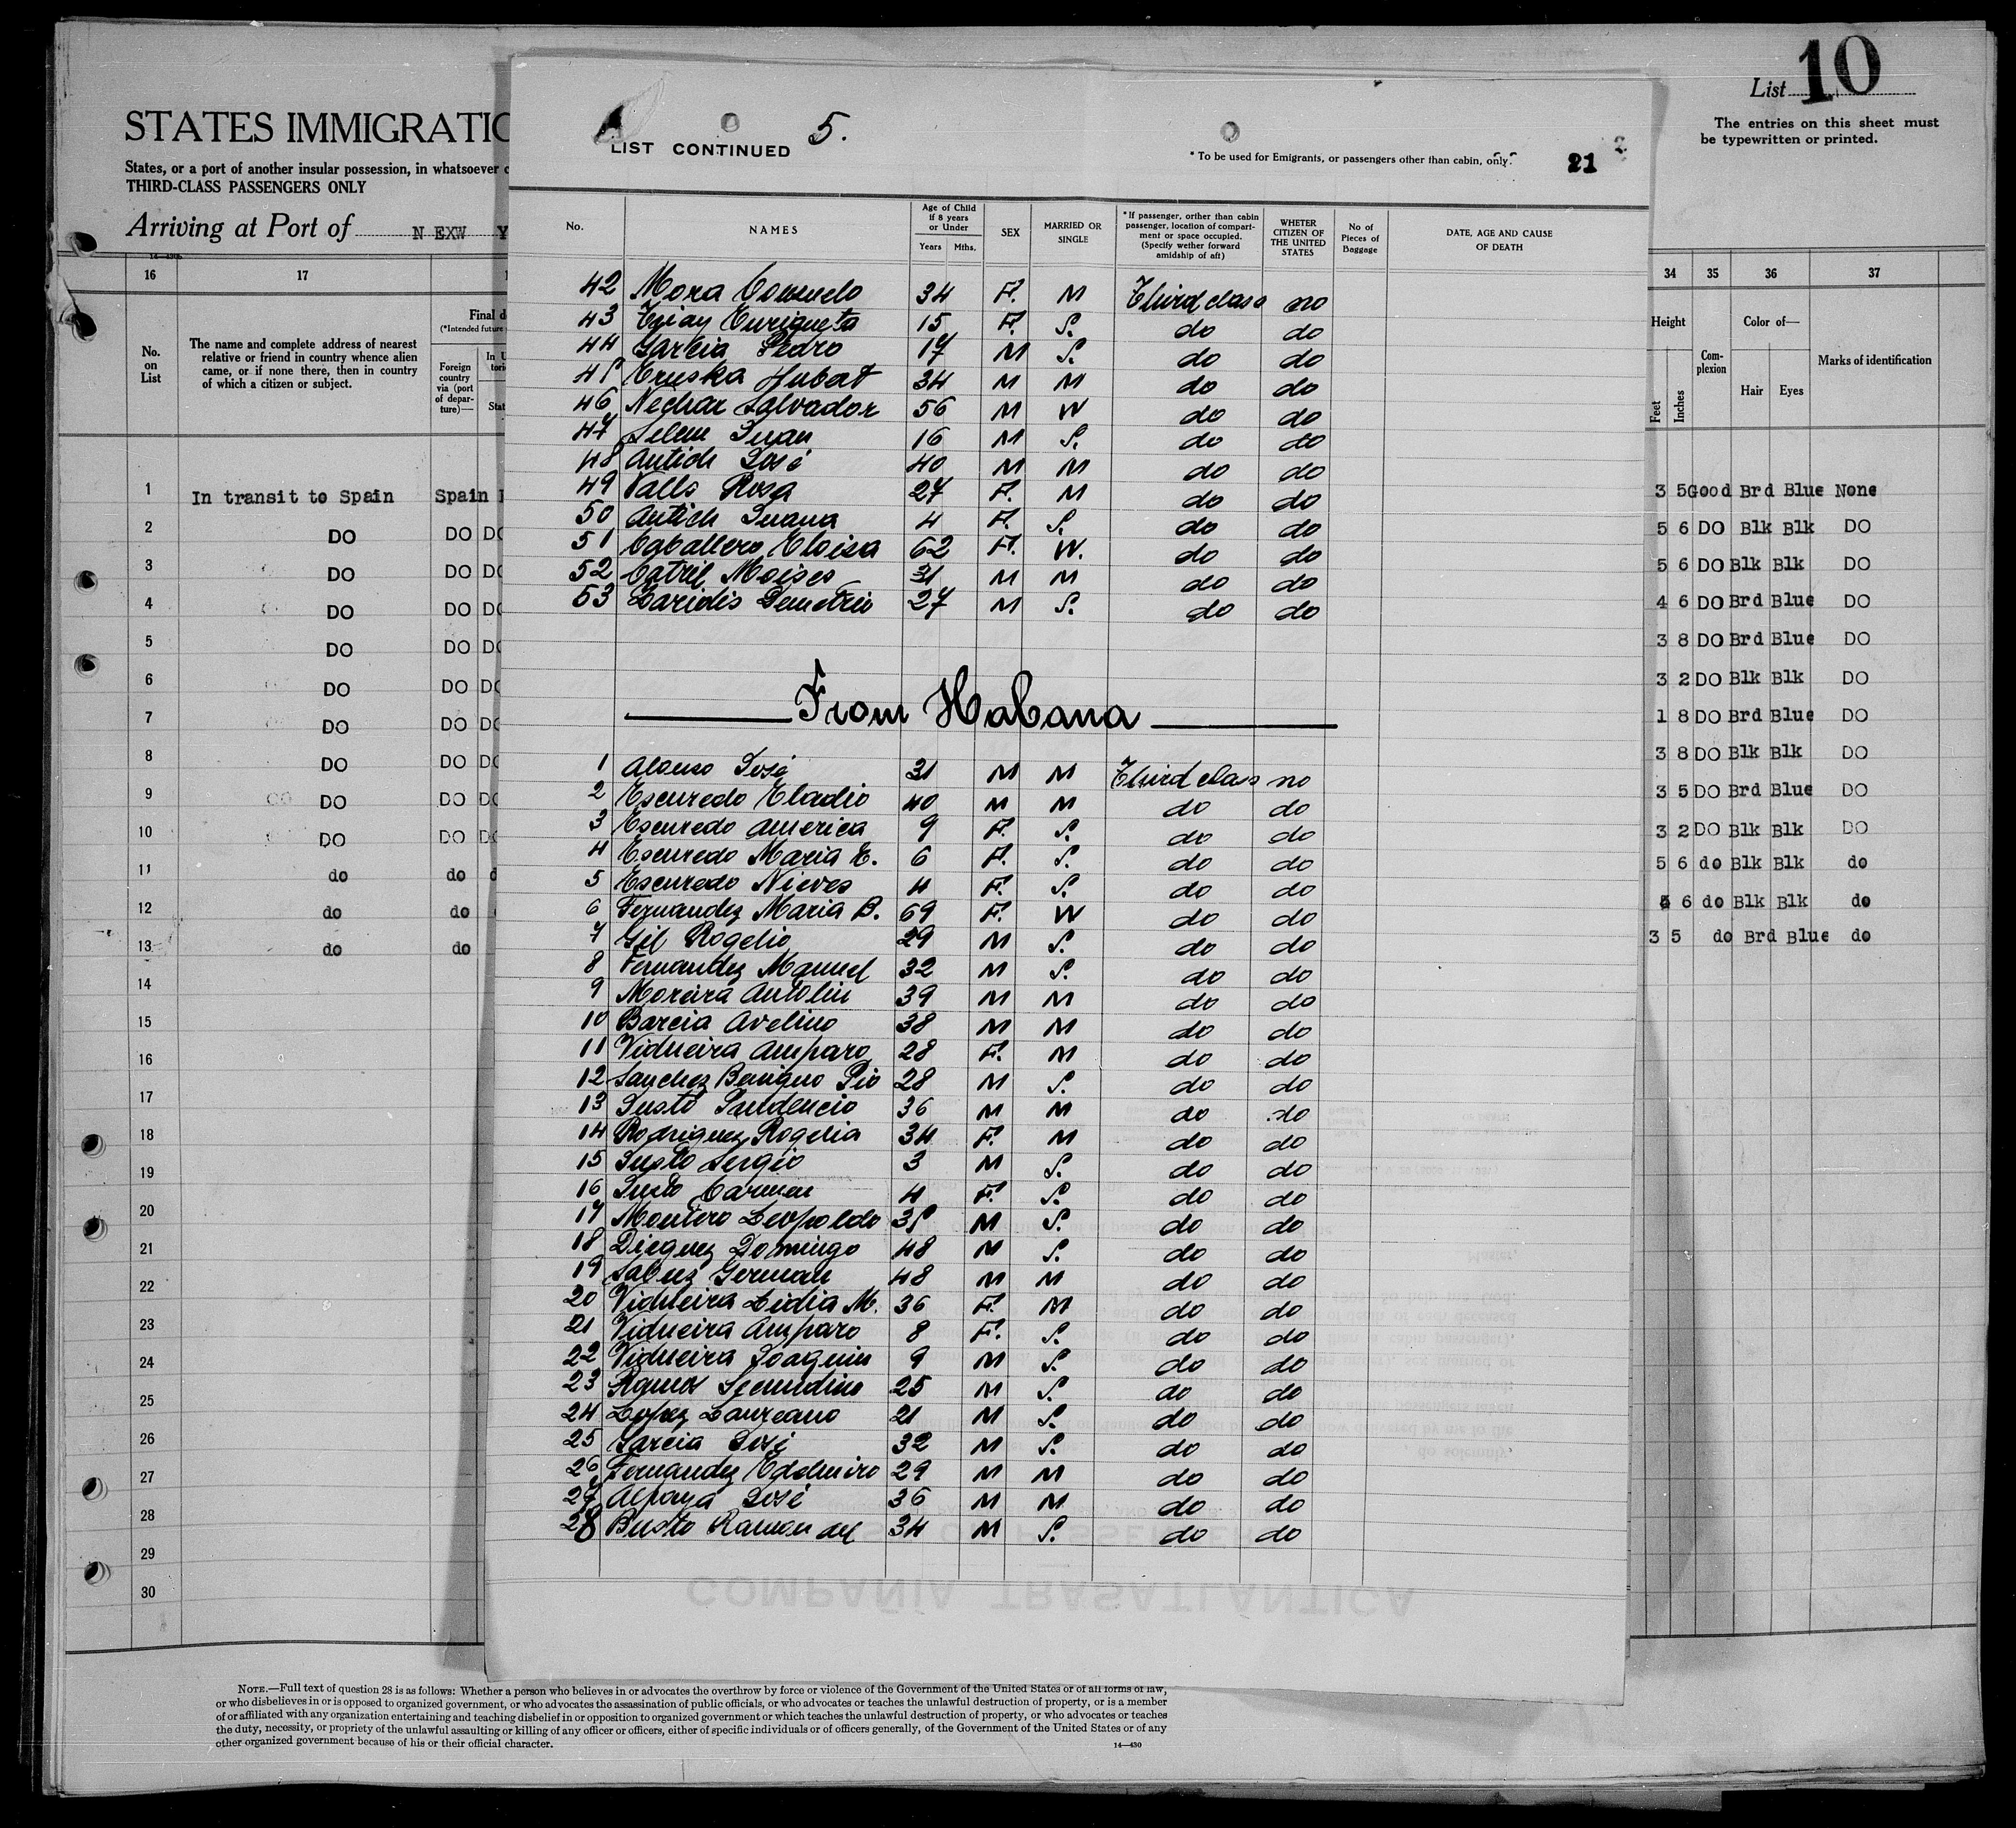 STATES IMMIGRATIO
States, or a port of another insular possession, in whatsoever
THIRD-CLASS PASSENGERS ONLY
Arriving at Port of N EXW Y
List 10
The entries on this sheet must
be typewritten or printed.
LIST CONTINUED 5.
* To be used for Emigrants, or passengers other than cabin, only.
21
No.
NAMES
Age of Child
if 8 years
or Under
Years Mths.
SEX
MARRIED OR
SINGLE
* If passenger, orther than cabin
passenger, location of compart-
ment or space occupied.
(Specify wether forward
amidship of aft)
WHETER
CITIZEN OF
THE UNITED
STATES
No of
Pieces of
Baggage
DATE, AGE AND CAUSE
OF DEATH
42 Mora Consuelo 34 F. M Third class no
43 Enriqueta 15 F. S. do do
44 Garcia Pedro 17 M S. do do
45 Kruska Hubert 34 M M do do
46 Nechar Salvador 56 M W do do
47 Selem Juan 16 M S. do do
48 Antich José 40 M M do do
49 Valls Rosa 27 F. M do do
50 Antich Juana 4 F. S. do do
51 Caballero Eloisa 62 F. W. do do
52 Catril Moises 31 M M do do
53 Laridis Demetrio 27 M S. do do
From Habana
1 Alonso José 31 M M Third class no
2 Escuredo Eladio 40 M M do do
3 Escuredo America 9 F. S. do do
4 Escuredo Maria E. 6 F. S. do do
5 Escuredo Nieves 4 F. S. do do
6 Fernandez Maria B. 69 F. W do do
7 Gil Rogelio 29 M S. do do
8 Fernandez Manuel 32 M S. do do
9 Moreira Antolin 39 M M do do
10 Barcia Avelino 38 M M do do
11 Vidueira Amparo 28 F. M do do
12 Sanchez Benigno Pio 28 M S. do do
13 Justo Prudencio 36 M M do do
14 Rodriguez Rogelia 34 F. M do do
15 Justo Sergio 3 M S. do do
16 Justo Carmen 4 F. S. do do
17 Montero Leopoldo 35 M S. do do
18 Dieguez Domingo 48 M S. do do
19 German 48 M M do do
20 Vidueira Lidia M. 36 F. M do do
21 Vidueira Amparo 8 F. S. do do
22 Vidueira Joaquin 9 M S. do do
23 Ramos Secundino 25 M S. do do
24 Lopez Laureano 21 M S. do do
25 Garcia José 32 M S. do do
26 Fernandez Edelmiro 29 M M do do
27 Alpaya José 36 M M do do
28 Busto Ramon del 34 M S. do do
COMPAÑIA TRASATLANTICA
16 17
No.
on
List
The name and complete address of nearest
relative or friend in country whence alien
came, or if none there, then in country
of which a citizen or subject.
Final d
(*Intended future
Foreign
country
via (port
of depar-
ture)—
In U
tori
Stat
34 35 36 37
Height
Feet
Inches
Com-
plexion
Color of—
Hair Eyes
Marks of identification
1 In transit to Spain Spain 3 5 Good Brd Blue None
2 DO DO DO 5 6 DO Blk Blk DO
3 DO DO DO 5 6 DO Blk Blk DO
4 DO DO DO 4 6 DO Brd Blue DO
5 DO DO DO 3 8 DO Brd Blue DO
6 DO DO DO 3 2 DO Blk Blk DO
7 DO DO DO 1 8 DO Brd Blue DO
8 DO DO DO 3 8 DO Blk Blk DO
9 DO DO DO 3 5 DO Brd Blue DO
10 DO DO DO 3 2 DO Blk Blk DO
11 do do d 5 6 do Blk Blk do
12 do do 5 6 do Blk Blk do
13 do do 3 5 do Brd Blue do
14
15
16
17
18
19
20
21
22
23
24
25
26
27
28
29
30
NOTE.—Full text of question 28 is as follows: Whether a person who believes in or advocates the overthrow by force or violence of the Government of the United States or of all forms of law,
or who disbelieves in or is opposed to organized government, or who advocates the assassination of public officials, or who advocates or teaches the unlawful destruction of property, or is a member
of or affiliated with any organization entertaining and teaching disbelief in or opposition to organized government or which teaches the unlawful destruction of property, or who advocates or teaches
the duty, necessity, or propriety of the unlawful assaulting or killing of any officer or officers, either of specific individuals or of officers generally, of the Government of the United States or of any
other organized government because of his or their official character.
14—430